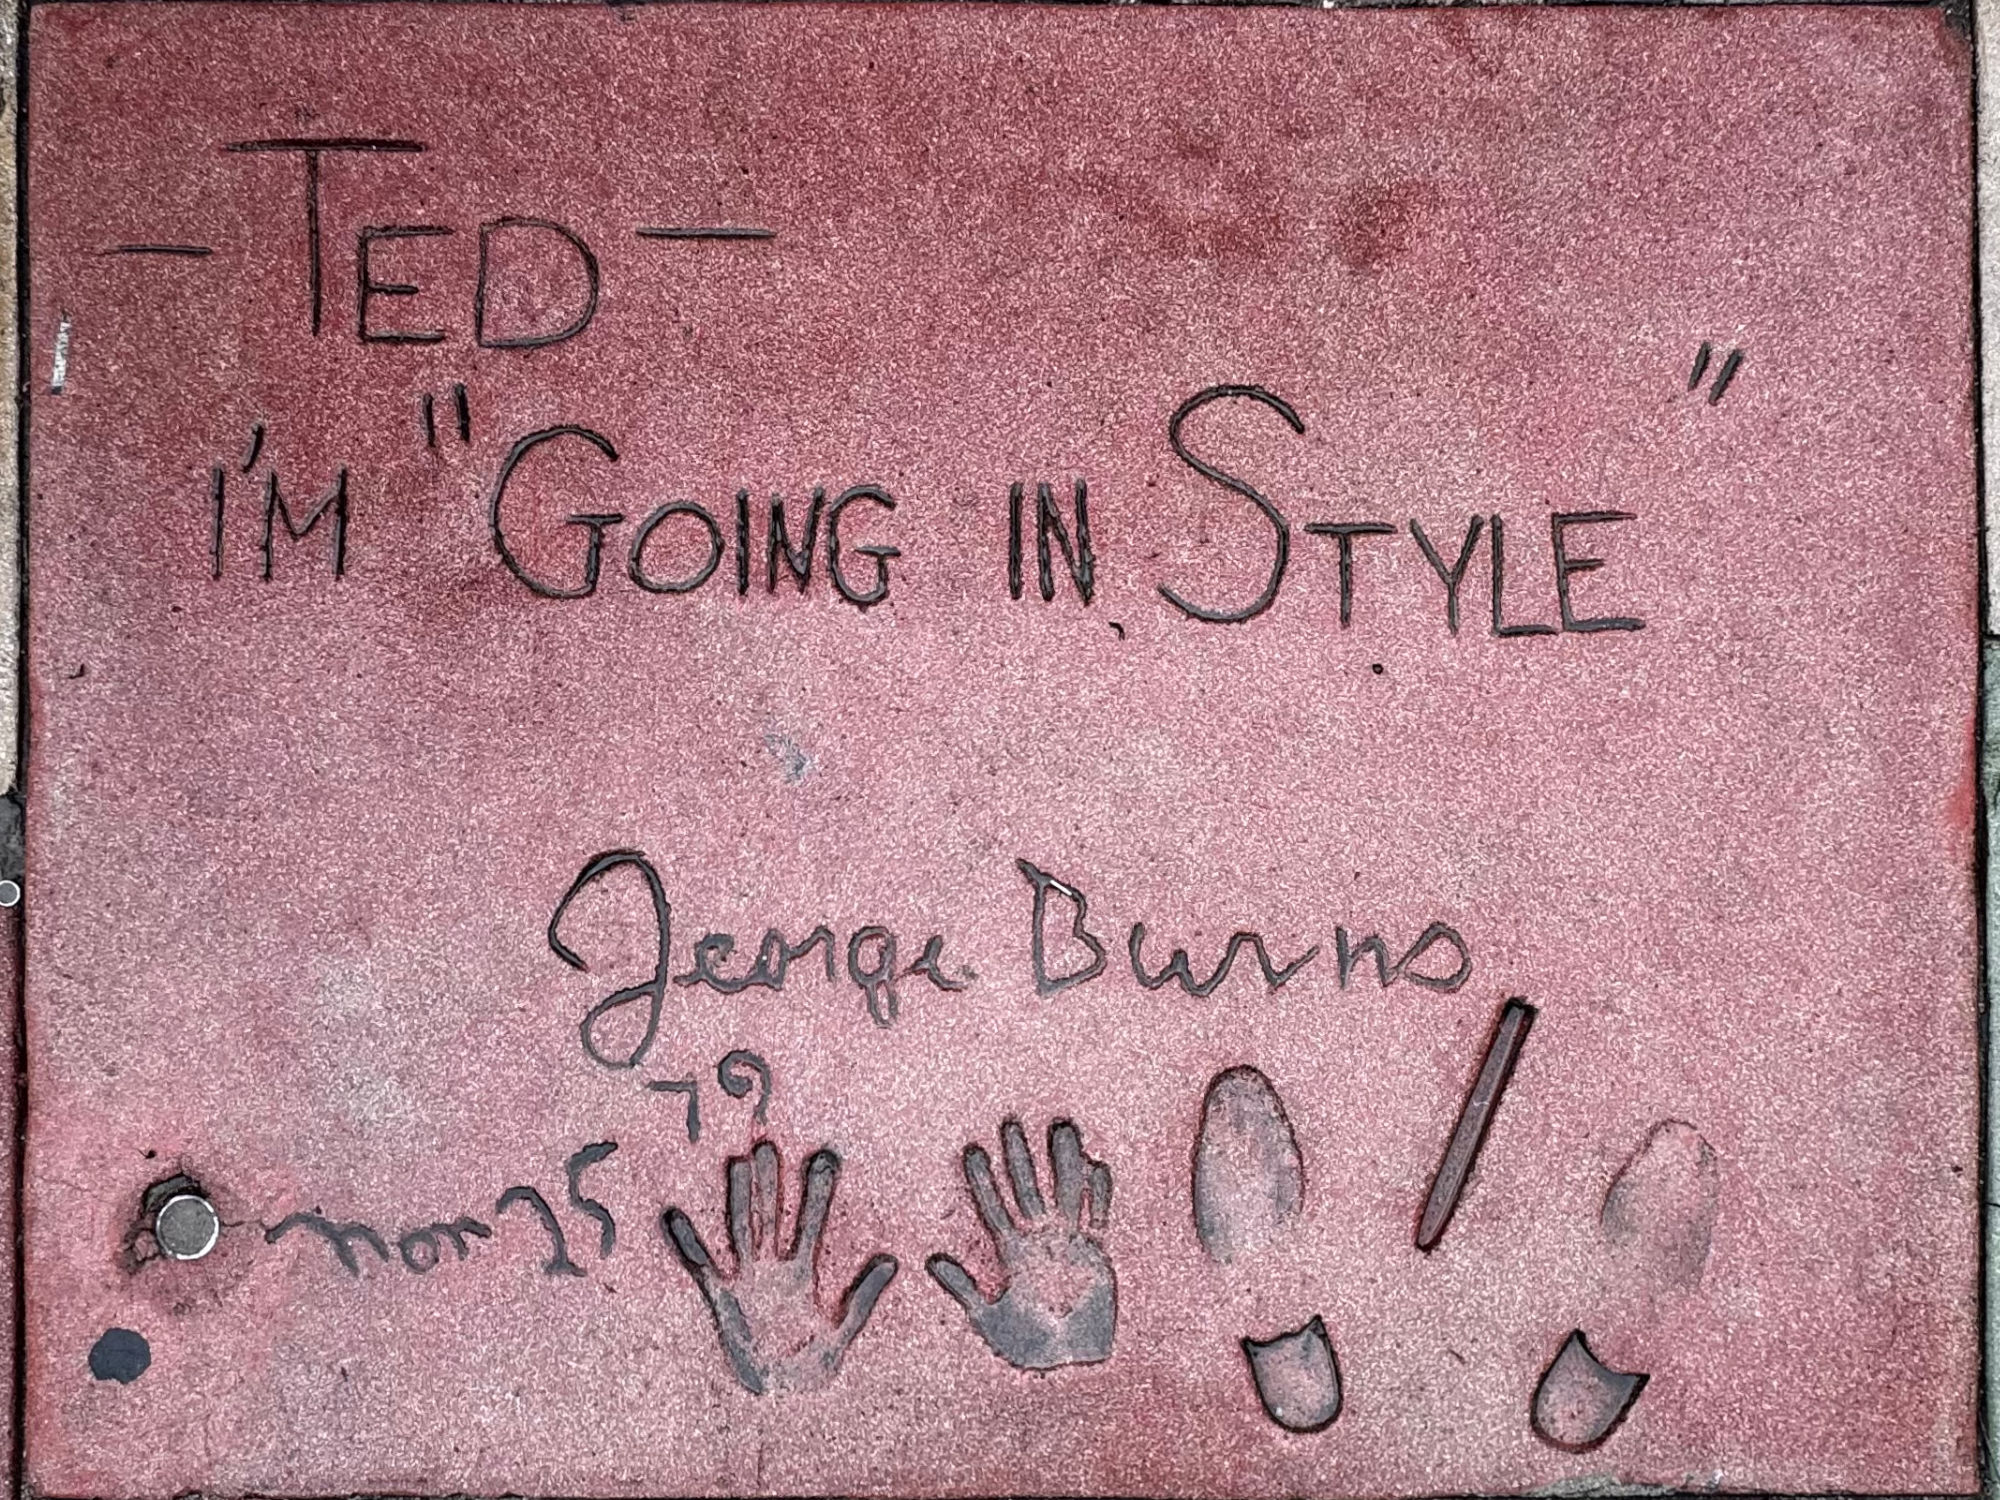 — TED —
I'M "GOING IN STYLE"
George Burns
nov 25 79